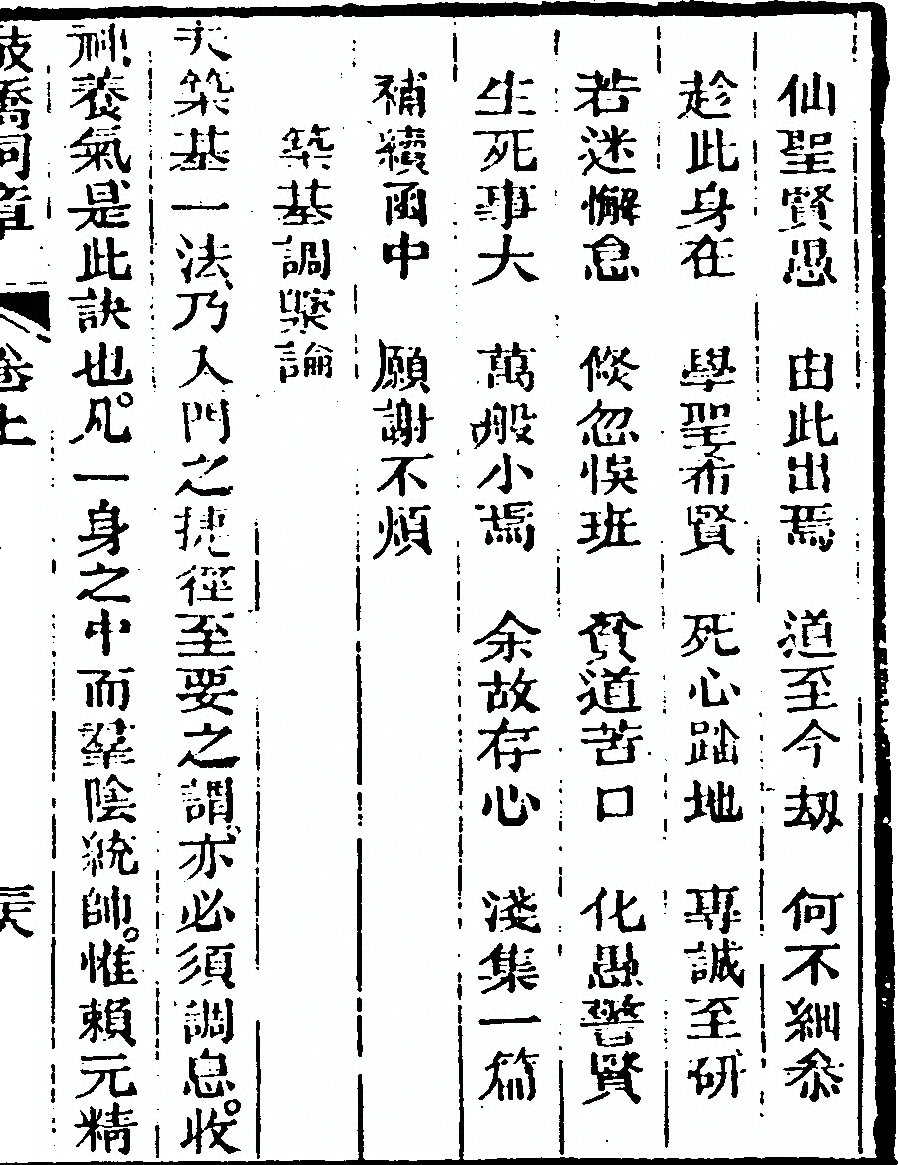 仙聖賢愚　由此出焉　道至今刼　何不細叅
趁此身在　學聖希賢　死心踏地　專誠至研
若迷懈怠　倐忽悞班　貧道苦口　化愚警賢
生死事大　萬般小焉　余故存心　淺集一篇
補續函中　願謝不煩
築基調藥論
夫築基一法乃入門之捷徑至要之謂亦必須調息。收
神養氣是此訣也。凡一身之中而羣陰統帥。惟賴元精
敲蹻洞章　卷上